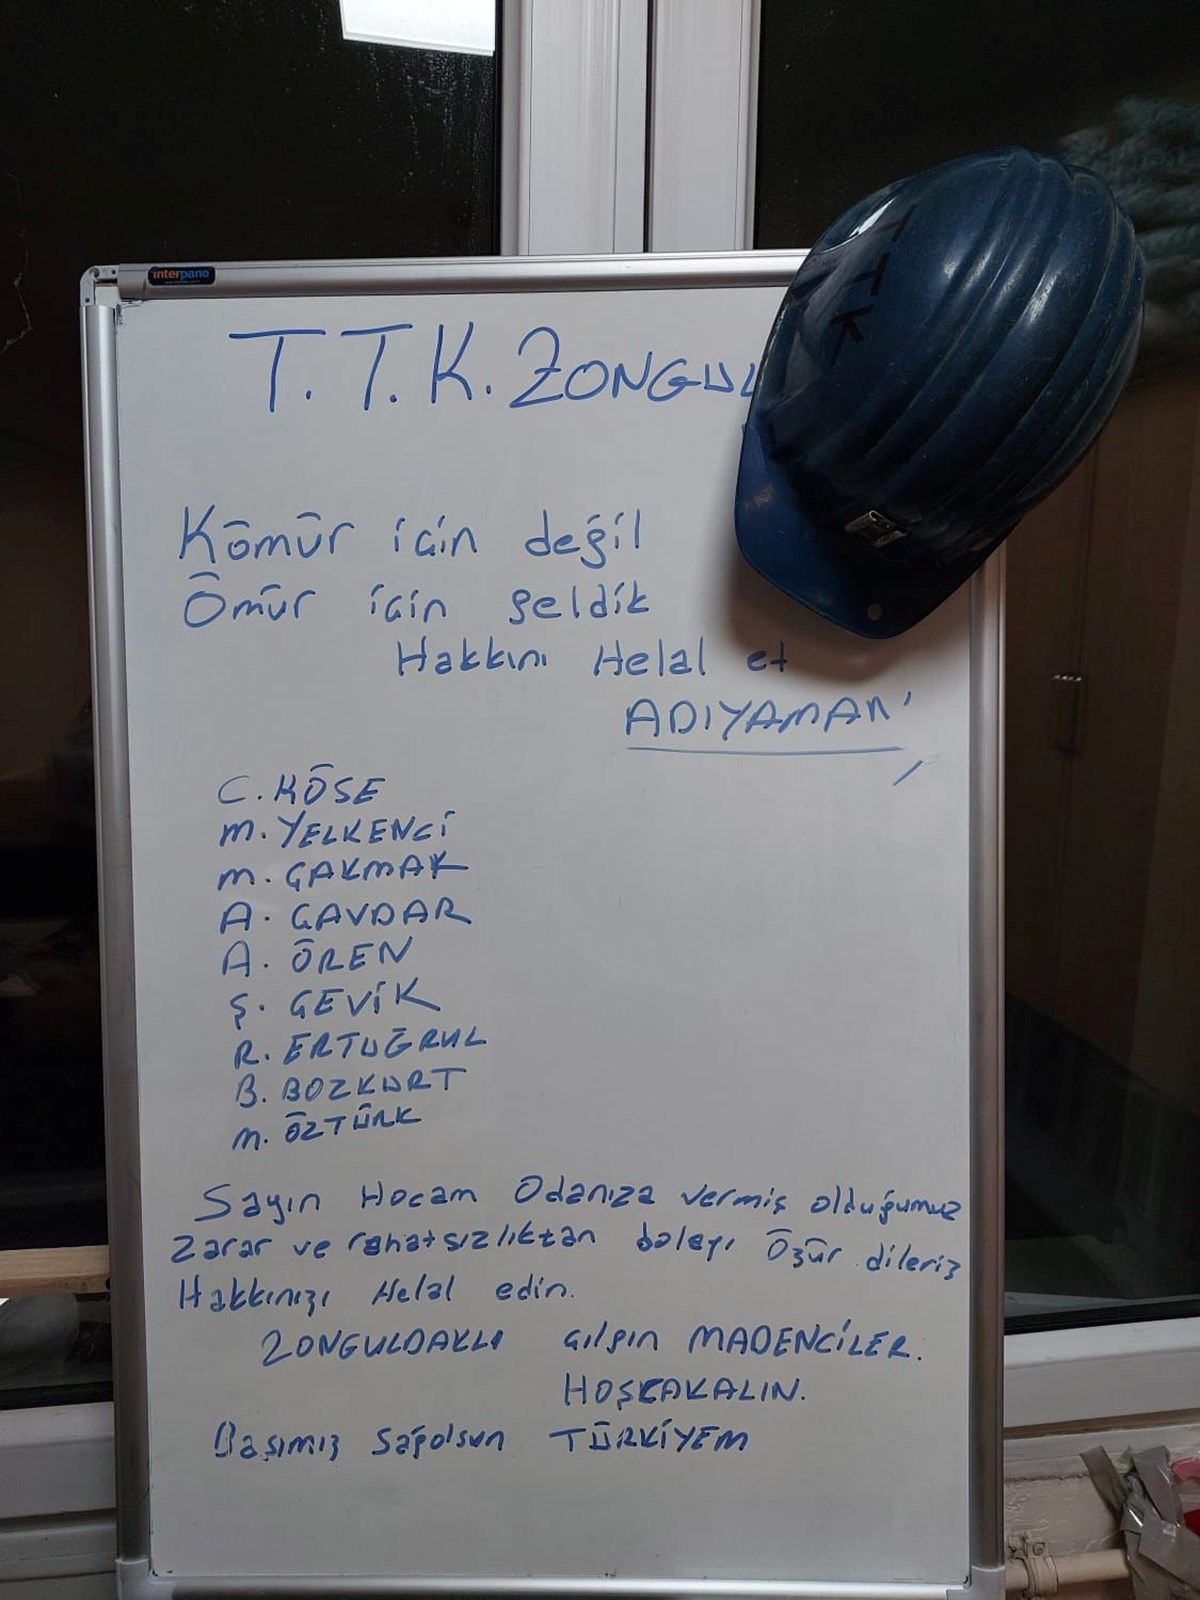 interpano
T.T.K. ZONGUL
TTK
Kömür için değil
Ömür için geldik
Hakkını Helal et
ADIYAMAN
C. KÖSE
M. YELKENCİ
M. ÇAKMAK
A. ÇAVDAR
A. ÖREN
Ş. ÇEVİK
R. ERTUĞRUL
B. BOZKURT
M. ÖZTÜRK
Sayın Hocam Odanıza vermiş olduğumuz
Zarar ve rahatsızlıktan dolayı Özür dileriz
Hakkınızı Helal edin.
ZONGULDAKLI Çılgın MADENCİLER.
HOŞÇAKALIN.
Başımız Sağolsun TÜRKİYEM